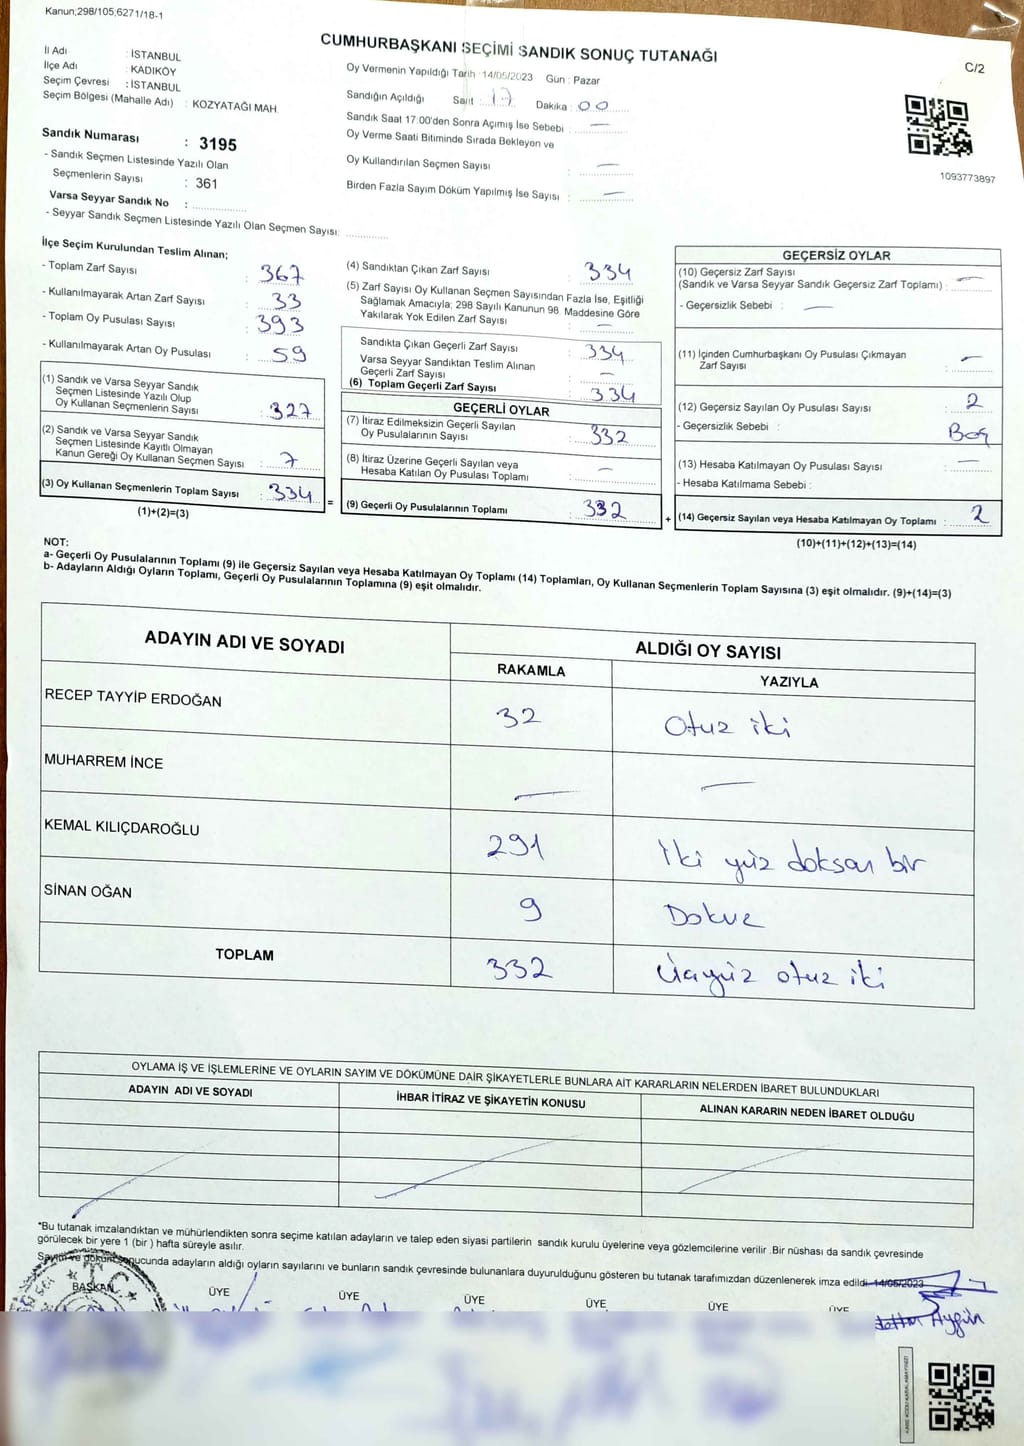 Kanun;298/105;6271/18-1
CUMHURBAŞKANI SEÇİMİ SANDIK SONUÇ TUTANAĞI
C/2
İl Adı : İSTANBUL
İlçe Adı : KADIKÖY
Seçim Çevresi : İSTANBUL
Seçim Bölgesi (Mahalle Adı) : KOZYATAĞI MAH.
Sandık Numarası : 3195
- Sandık Seçmen Listesinde Yazılı Olan
Seçmenlerin Sayısı : 361
Varsa Seyyar Sandık No :
- Seyyar Sandık Seçmen Listesinde Yazılı Olan Seçmen Sayısı:
Oy Vermenin Yapıldığı Tarih :14/05/2023 Gün : Pazar
Sandığın Açıldığı Saat : 17 Dakika : 00
Sandık Saat 17:00'den Sonra Açımış İse Sebebi : —
Oy Verme Saati Bitiminde Sırada Bekleyen ve
Oy Kullandırılan Seçmen Sayısı : —
Birden Fazla Sayım Döküm Yapılmış İse Sayısı : —
1093773897
İlçe Seçim Kurulundan Teslim Alınan;
- Toplam Zarf Sayısı : 367
- Kullanılmayarak Artan Zarf Sayısı : 33
- Toplam Oy Pusulası Sayısı : 393
- Kullanılmayarak Artan Oy Pusulası : 59
(1) Sandık ve Varsa Seyyar Sandık
Seçmen Listesinde Yazılı Olup
Oy Kullanan Seçmenlerin Sayısı : 327
(2) Sandık ve Varsa Seyyar Sandık
Seçmen Listesinde Kayıtlı Olmayan
Kanun Gereği Oy Kullanan Seçmen Sayısı : 7
(3) Oy Kullanan Seçmenlerin Toplam Sayısı : 334
(1)+(2)=(3)
=
(4) Sandıktan Çıkan Zarf Sayısı : 334
(5) Zarf Sayısı Oy Kullanan Seçmen Sayısından Fazla İse, Eşitliği
Sağlamak Amacıyla; 298 Sayılı Kanunun 98. Maddesine Göre
Yakılarak Yok Edilen Zarf Sayısı : —
Sandıkta Çıkan Geçerli Zarf Sayısı : 334
Varsa Seyyar Sandıktan Teslim Alınan
Geçerli Zarf Sayısı : —
(6) Toplam Geçerli Zarf Sayısı : 334
GEÇERLİ OYLAR
(7) İtiraz Edilmeksizin Geçerli Sayılan
Oy Pusulalarının Sayısı : 332
(8) İtiraz Üzerine Geçerli Sayılan veya
Hesaba Katılan Oy Pusulası Toplamı : —
(9) Geçerli Oy Pusulalarının Toplamı : 332
+
GEÇERSİZ OYLAR
(10) Geçersiz Zarf Sayısı
(Sandık ve Varsa Seyyar Sandık Geçersiz Zarf Toplamı) : —
- Geçersizlik Sebebi : —
(11) İçinden Cumhurbaşkanı Oy Pusulası Çıkmayan
Zarf Sayısı : —
(12) Geçersiz Sayılan Oy Pusulası Sayısı : 2
- Geçersizlik Sebebi : Boş
(13) Hesaba Katılmayan Oy Pusulası Sayısı : —
- Hesaba Katılmama Sebebi :
(14) Geçersiz Sayılan veya Hesaba Katılmayan Oy Toplamı : 2
(10)+(11)+(12)+(13)=(14)
NOT:
a- Geçerli Oy Pusulalarının Toplamı (9) ile Geçersiz Sayılan veya Hesaba Katılmayan Oy Toplamı (14) Toplamları, Oy Kullanan Seçmenlerin Toplam Sayısına (3) eşit olmalıdır. (9)+(14)=(3)
b- Adayların Aldığı Oyların Toplamı, Geçerli Oy Pusulalarının Toplamına (9) eşit olmalıdır.
ADAYIN ADI VE SOYADI ALDIĞI OY SAYISI
RAKAMLA YAZIYLA
RECEP TAYYİP ERDOĞAN 32 Otuz iki
MUHARREM İNCE — —
KEMAL KILIÇDAROĞLU 291 İki yüz doksan bir
SİNAN OĞAN 9 Dokuz
TOPLAM 332 Üçyüz otuz iki
OYLAMA İŞ VE İŞLEMLERİNE VE OYLARIN SAYIM VE DÖKÜMÜNE DAİR ŞİKAYETLERLE BUNLARA AİT KARARLARIN NELERDEN İBARET BULUNDUKLARI
ADAYIN ADI VE SOYADI İHBAR İTİRAZ VE ŞİKAYETİN KONUSU ALINAN KARARIN NEDEN İBARET OLDUĞU
*Bu tutanak imzalandıktan ve mühürlendikten sonra seçime katılan adayların ve talep eden siyasi partilerin sandık kurulu üyelerine veya gözlemcilerine verilir .Bir nüshası da sandık çevresinde
görülecek bir yere 1 (bir ) hafta süreyle asılır.
Sayım ve döküm sonucunda adayların aldığı oyların sayılarını ve bunların sandık çevresinde bulunanlara duyurulduğunu gösteren bu tutanak tarafımızdan düzenlenerek imza edildi. 14/05/2023
BAŞKAN ÜYE ÜYE ÜYE ÜYE ÜYE ÜYE
T.C.
Aygün